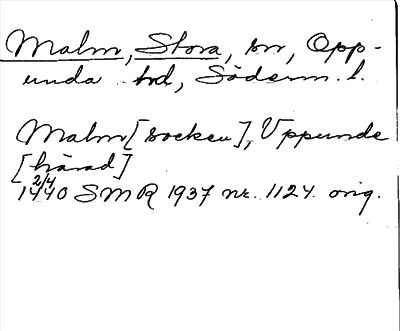 Malm, Stora, sn, Opp-
unda hd, Söderm. l.
Malm [socken], Uppunde
[härad]
2/4
1440 SMR 1937 nr. 1124. orig.